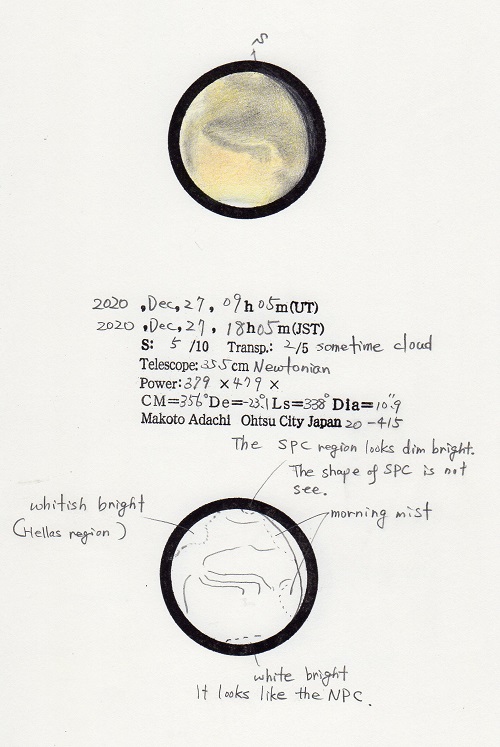 S
2020 , Dec, 27, 09h 05m(UT)
2020 , Dec, 27, 18h05m(JST)
S: 5 /10 Transp.: 2/5 sometime cloud
Telescope: 35.5cm Newtonian
Power: 379 ×479 ×
CM=356° De=-23.°1 Ls=338° Dia=10".9
Makoto Adachi Ohtsu City Japan 20-415
The SPC region looks dim bright.
The shape of SPC is not
see.
whitish bright
(Hellas region)
morning mist
white bright
It looks like the NPC.